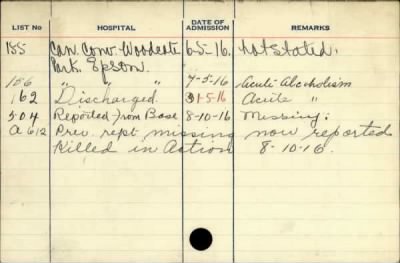 LIST NO HOSPITAL DATE OF ADMISSION REMARKS
155 Can. Conv. Woodcote 6-5-16. Not stated.
Park. Epsom.
156 " " " 7-5-16 Acute Alcoholism
162 "Discharged. 31-5-16 Acute "
504 Reported from Base 8-10-16 Missing.
A 612 Prev. rept missing now reported
Killed in Action 8-10-16.